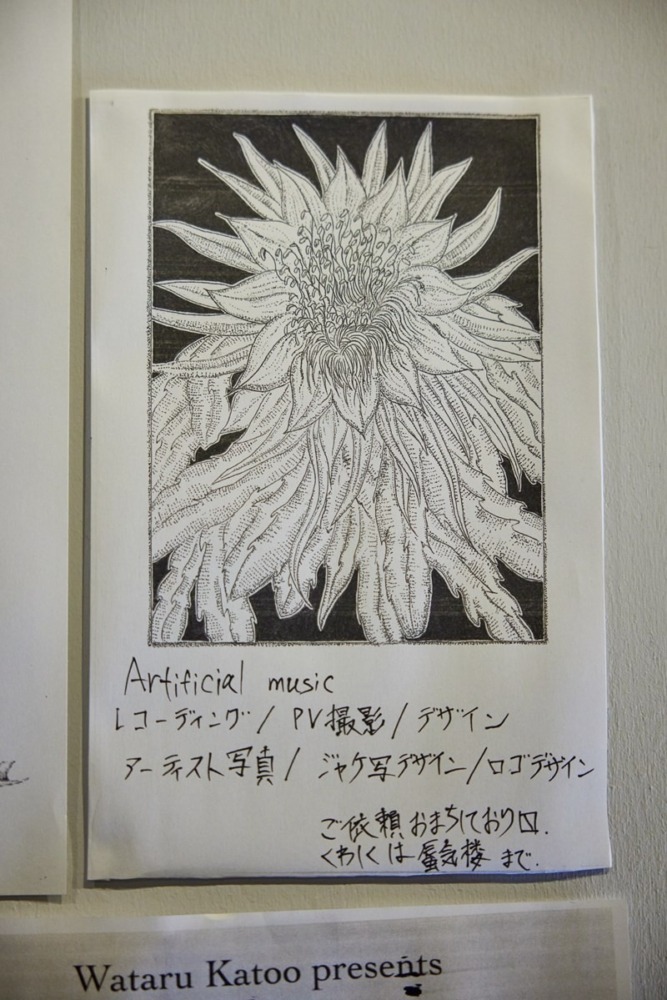 Artificial music
レコーディング / PV撮影 / デザイン
アーティスト写真 / ジャケ写デザイン/ロゴデザイン
ご依頼おまちしており〼.
くわしくは蜃気楼まで.
Wataru Katoo presents